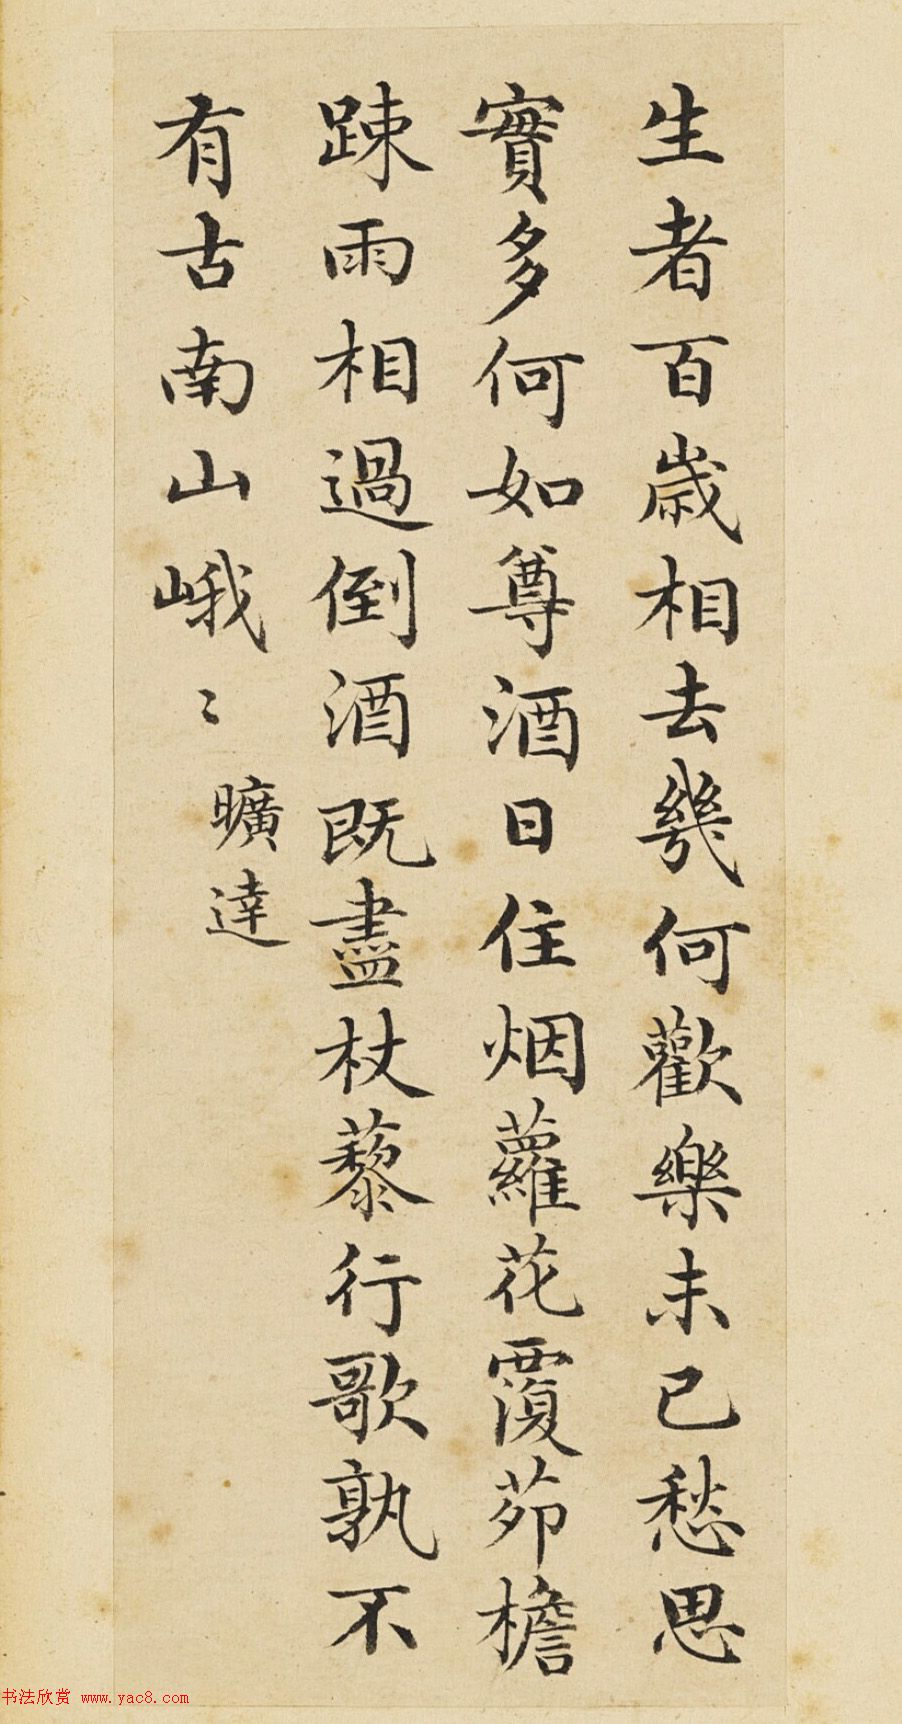 生者百歲相去幾何歡樂未已愁思
實多何如尊酒日住烟蘿花覆茆檐
踈雨相過倒酒既盡杖藜行歌孰不
有古南山峨〻
曠達
书法欣赏 www.yac8.com